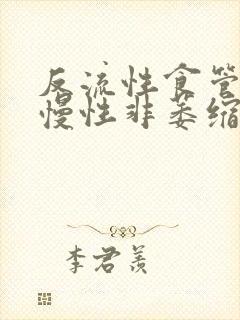 反流性食管
慢性非萎缩
李君羡